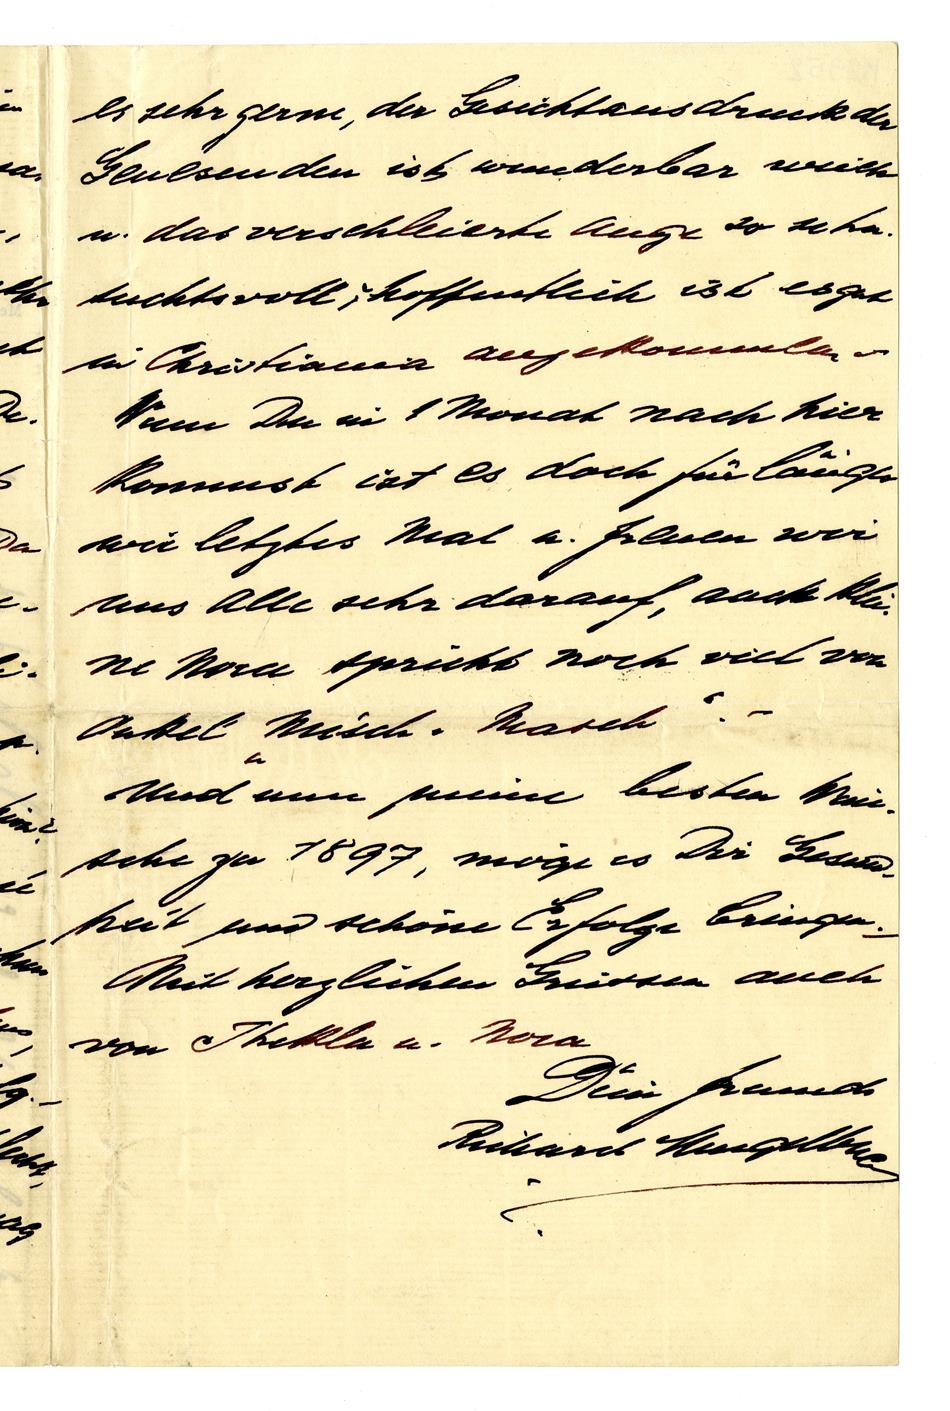 es sehr gerne, der Gesichtsausdruck der
Genesenden ist wunderbar weich
u. das verschleierte Auge so sehn-
suchtsvoll; hoffentlich ist es gut
in Christiania angekommen. –
Wenn Du in 1 Monat nach hier
kommst ist es doch für länger
wie letztes Mal u. freuen wir
uns Alle sehr darauf, auch klei-
ne Nora spricht noch viel von
Onkel "Misch-Masch". –
Und nun meine besten Wün-
sche zu 1897, möge es Dir Gesund-
heit und schöne Erfolge bringen. –
Mit herzlichen Grüssen auch
von Thekla u. Nora
Dein Freund
Richard